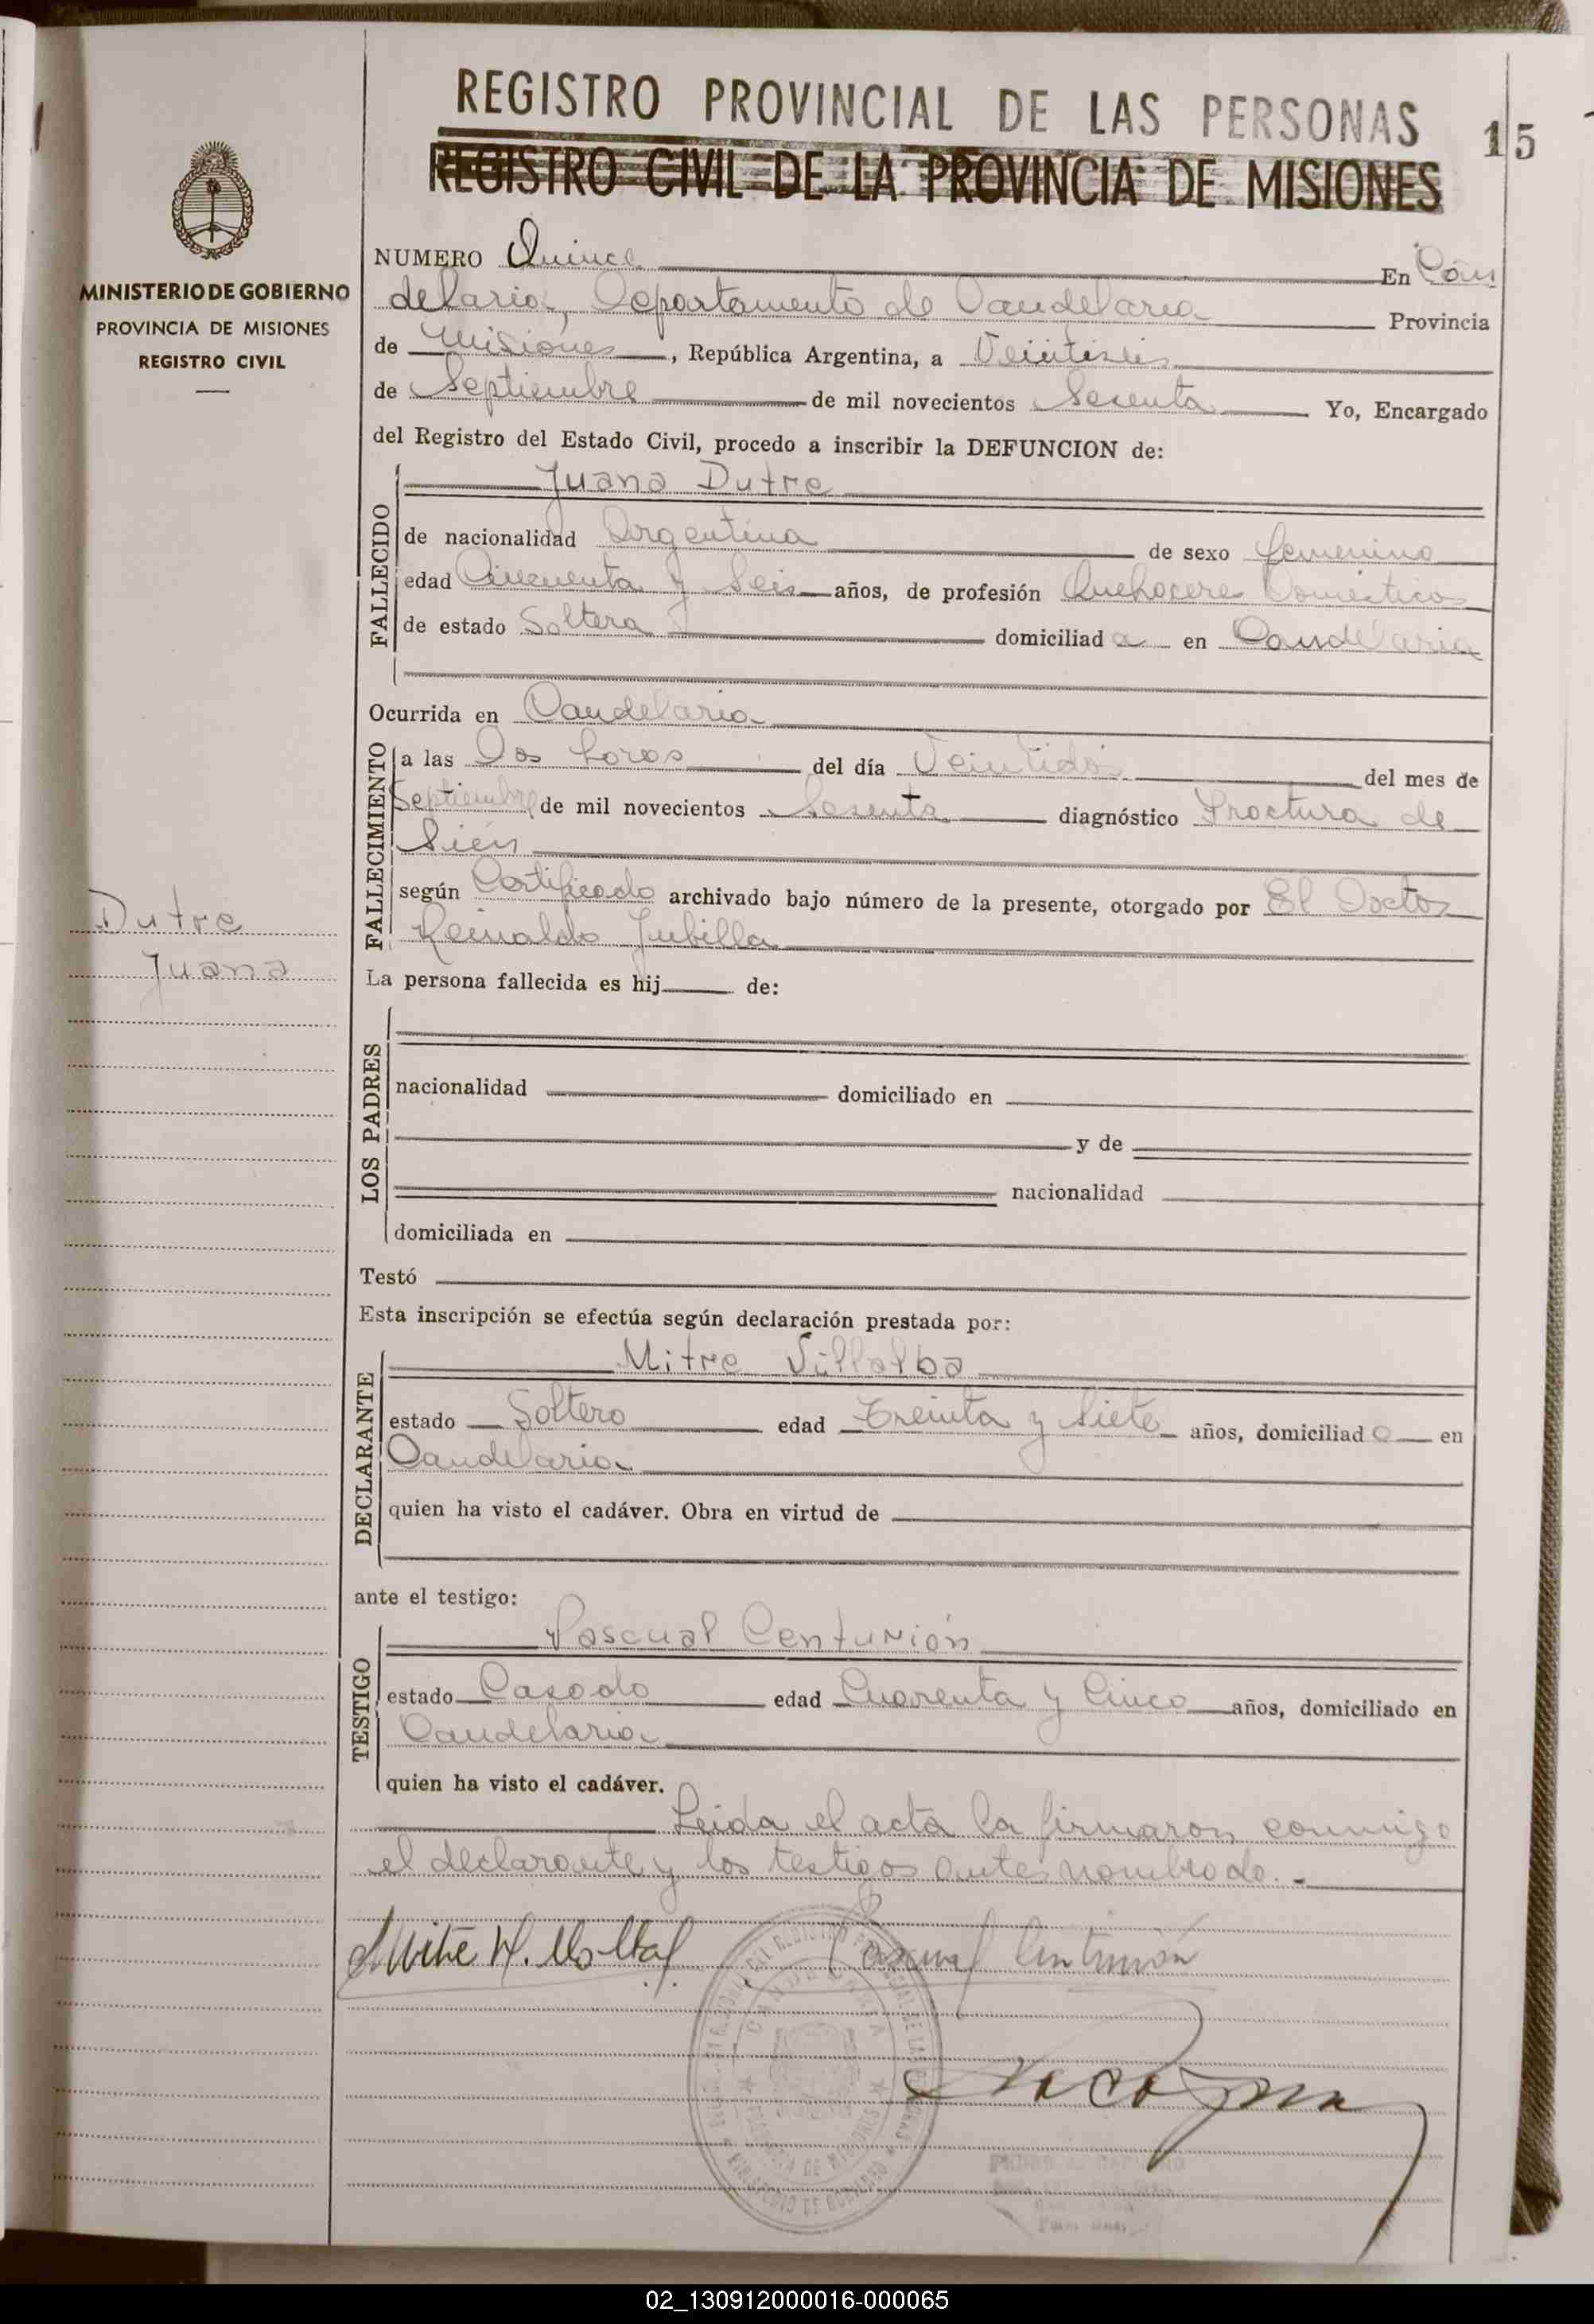 REGISTRO PROVINCIAL DE LAS PERSONAS
15
REGISTRO CIVIL DE LA PROVINCIA DE MISIONES
MINISTERIO DE GOBIERNO
PROVINCIA DE MISIONES
REGISTRO CIVIL
NUMERO Quince En Can
delaria, Departamento de Candelaria Provincia
de Misiones, República Argentina, a Veintiseis
de Septiembre de mil novecientos Sesenta Yo, Encargado
del Registro del Estado Civil, procedo a inscribir la DEFUNCION de:
FALLECIDO
Juana Dutre
de nacionalidad Argentina de sexo femenino
edad Cincuenta y Seis años, de profesión Quehaceres Domesticos
de estado Soltera domiciliad a en Candelaria
Ocurrida en Candelaria
FALLECIMIENTO
a las Dos horas del día Veintidós del mes de
Septiembre de mil novecientos Sesenta diagnóstico Fractura de
Sién
según Certificado archivado bajo número de la presente, otorgado por El Doctor
Reinaldo Jubilla
Dutre
Juana
La persona fallecida es hij de:
LOS PADRES
nacionalidad domiciliado en
y de
nacionalidad
domiciliada en
Testó
Esta inscripción se efectúa según declaración prestada por:
DECLARANTE
Mitre Villalba
estado Soltero edad Treinta y Siete años, domiciliad o en
Candelaria
quien ha visto el cadáver. Obra en virtud de
ante el testigo:
TESTIGO
Pascual Centurión
estado Casado edad Cuarenta y Cinco años, domiciliado en
Candelaria
quien ha visto el cadáver.
Leida el acta la firmaron conmigo
el declarante y los testigos antes nombrado.-
Pascual Centurión
CANDELARIA
PROVINCIA DE MISIONES
MINISTERIO DE GOBIERNO
02_130912000016-000065